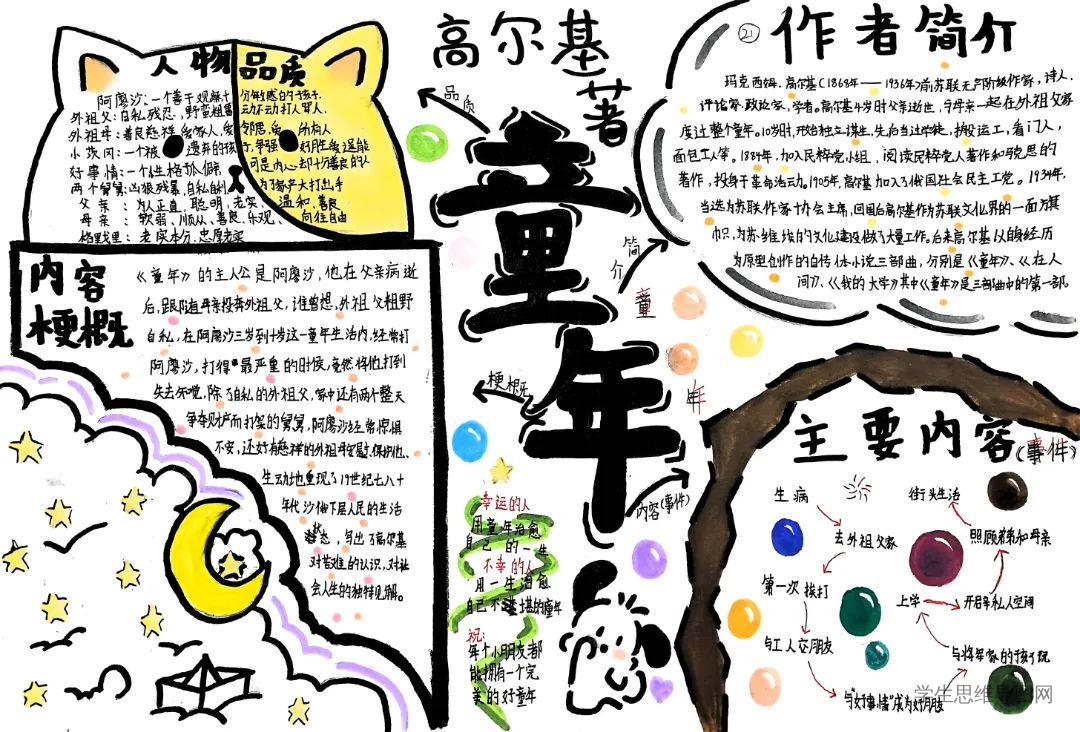 高尔基
著
童年
人物品质
阿廖沙:一个善于观察十分敏感的孩子
外祖父:自私残忍,野蛮粗暴动不动打人骂人.
外祖母:善良慈祥
小茨冈:一个被遗弃的孩子,争强好胜
可是内心却十分善良的人
好事情:一个生格孤僻
两个舅舅:凶狠残暴,自私自利为了家产大打出手
父亲:为人正直,聪明,老实,温和,善良
母亲:软弱,顺从,善良,乐观,向住自由
格里戈里:老实本分,忠厚老实
内容
梗概
《童年》的主人公是阿廖沙,他在父亲病逝
后,跟随母亲投奔外祖父,谁曾想,外祖父粗野
自私,在阿廖沙三岁到十岁这一童年生活内,经常打
阿廖沙,打得最严重的时候,竟然将他打到
失去知觉,除了自私的外祖父,家中还有两个整天
争夺财产而打架的舅舅,阿廖沙经常惊惧
不安,还好有慈祥的外祖母安慰.保护他、
生动地重现了19世纪七八十
年代沙俄下层人民的生活
状态,写出了高尔基
对苦难的认识,对社
会人生的独特见解。
品质
简介
梗概
内容(事件)
童
年
幸运的人
用童年治愈
自己的一生
不幸的人
用一生治愈
自己不堪的童年
祝:
每个小朋友都
能拥有一个完
美的好童年
21
作者简介
玛克西姆.高尔基(1868年——1936年)前苏联无产阶级作家,诗人.
评论家,政论家,学者。高尔基4岁时父亲逝世,与母亲一起在外祖父家
度过整个童年。10岁时,开始独立谋生,先后当过学徒,搬运工,看门人,
面包工人等。1884年,加入民粹党小组,阅读民粹党人著作和马克思的
著作,投身于革命活动。1905年,高尔基加入了俄国社会民主工党。1934年.
当选为苏联作家协会主席,回国后高尔基作为苏联文化界的一面旗
帜,为苏维埃的文化建设做了大量工作。后来高尔基以自身经历
为原型创作的自传体小说三部曲,分别是《童年》、《在人
间》、《我的大学》其中《童年》是三部曲中的第一部
主要内容(事件)
生病
去外祖父家
第一次挨打
与工人交朋友
与"好事情"成为好朋友
与将军家的孩子玩
上学
开启自私人空间
照顾弟弟和母亲
街头生活
学生思维导图网